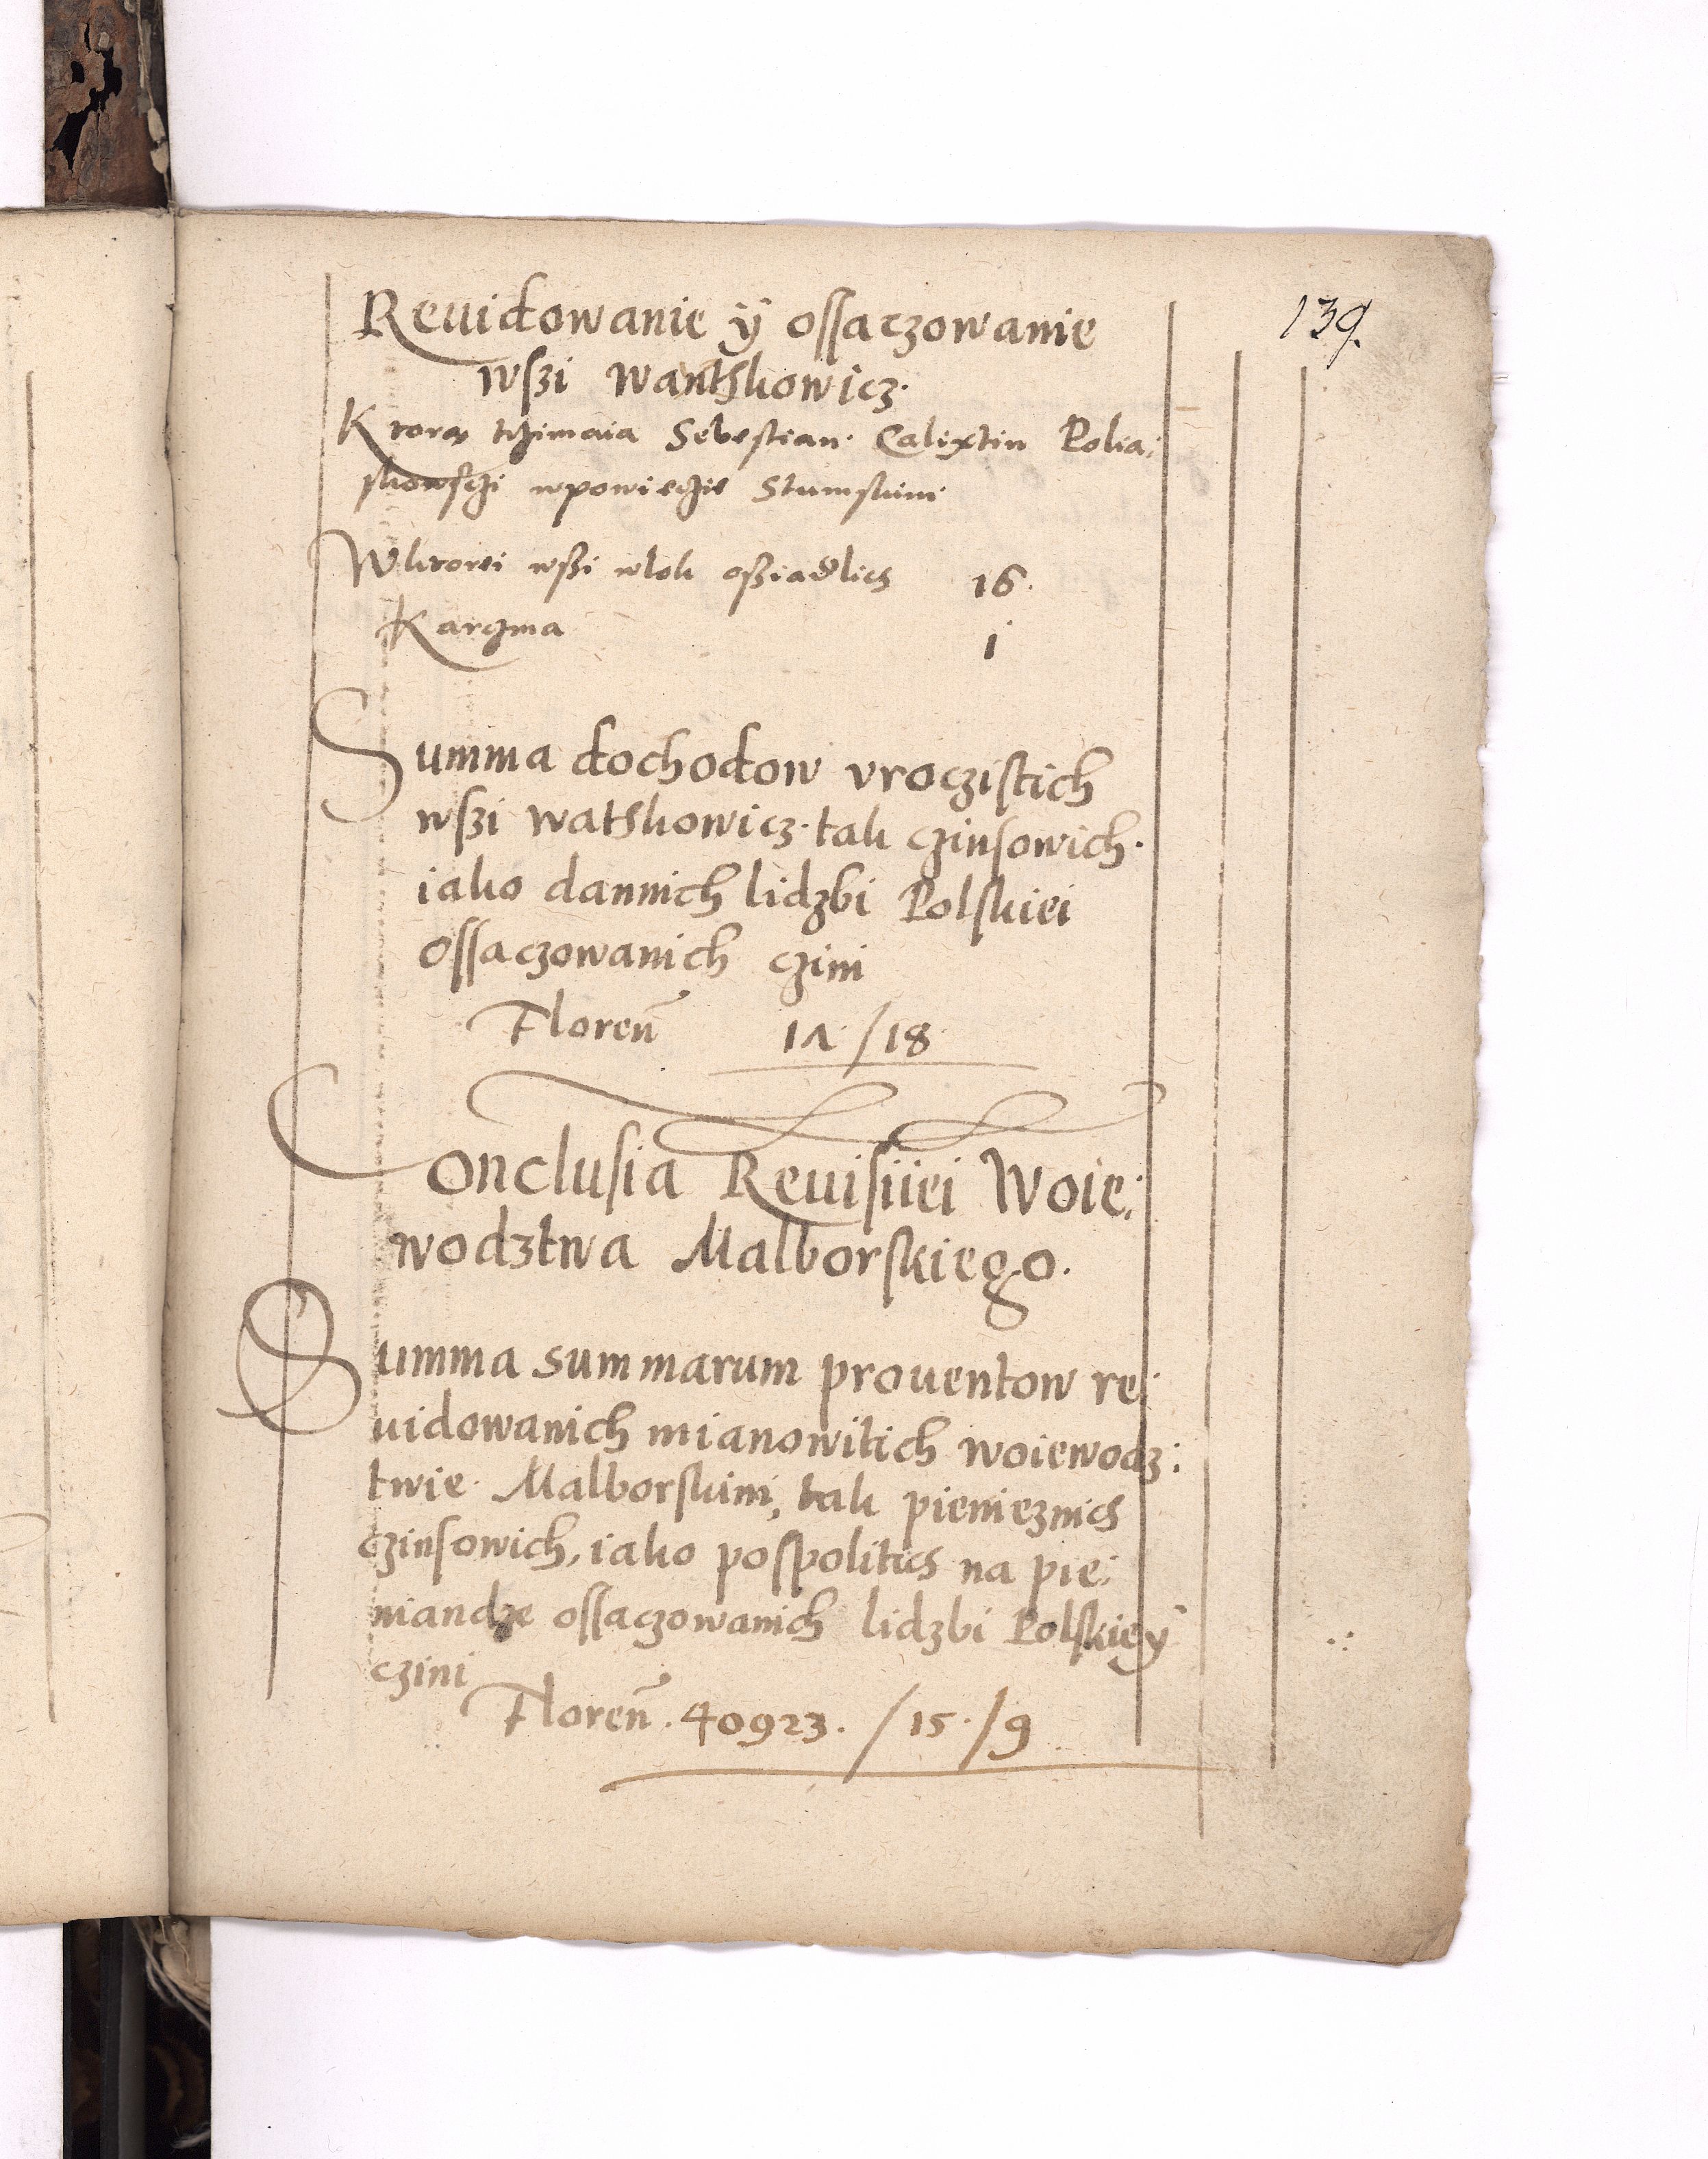 139.
Reuidowanie ÿ ossaczowanie
wszi Wantskowicz.
Ktora trzimaia Sebestian Calixtin Polia:
skowsczi wpowieczie Stumskim
Wktorei wszi wlok osziadlich 16.
Karczma 1
Summa dochodow vroczistich
wszi Watskowicz. tak czinsowich.
iako dannich lidzbi Polskiei
ossaczowanich czini
Floren̄ 1Λ./18.
Conclusia Reuisiiei Woie:
wodztwa Malborskiego.
Summa summarum prouentow re:
uidowanich mianowitich woiewodz:
twie Malborskim, tak pienieznich
czinsowich, iako pospolitich na pie:
niandze ossaczowanich lidzbi Polskieÿ
czini
Floren̄. 40923. /15./9